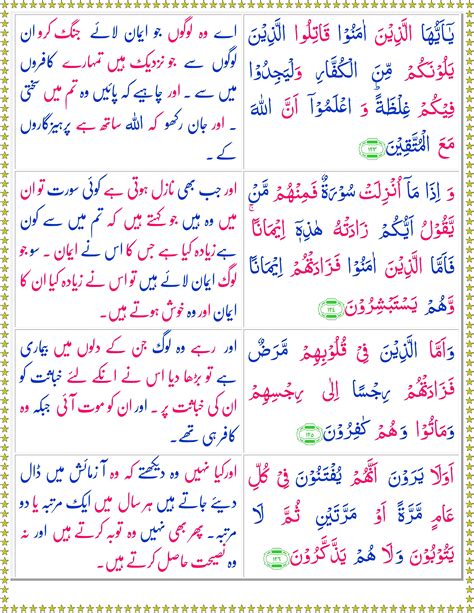 يٰٓاَيُّهَا الَّذِيْنَ اٰمَنُوْا قَاتِلُوا الَّذِيْنَ
يَلُوْنَكُمْ مِّنَ الْكُفَّارِ وَلْيَجِدُوْا
فِيْكُمْ غِلْظَةً ؕ وَ اعْلَمُوْۤا اَنَّ اللّٰهَ
مَعَ الْمُتَّقِيْنَ ﴿۱۲۳﴾
اے وہ لوگوں جو ایمان لائے جنگ کرو ان
لوگوں سے جو نزدیک ہیں تمہارے کافروں
میں سے ۔ اور چاہیے کہ پائیں وہ تم میں سختی
۔ اور جان رکھو کہ اللہ ساتھ ہے پرہیزگاروں
کے ۔
وَ اِذَا مَاۤ اُنْزِلَتْ سُوْرَةٌ فَمِنْهُمْ مَّنْ
يَّقُوْلُ اَيُّكُمْ زَادَتْهُ هٰذِهٖۤ اِيْمَانًا ۚ
فَاَمَّا الَّذِيْنَ اٰمَنُوْا فَزَادَتْهُمْ اِيْمَانًا
وَّهُمْ يَسْتَبْشِرُوْنَ ﴿۱۲۴﴾
اور جب بھی نازل ہوتی ہے کوئی سورت تو ان
میں وہ ہیں جو کہتے ہیں کہ تم میں سے کون
ہے زیادہ کیا ہے جس کا اس نے ایمان ۔ سو جو
لوگ ایمان لائے ہیں تو اس نے زیادہ کیا ان کا
ایمان اور وہ خوش ہوتے ہیں۔
وَاَمَّا الَّذِيْنَ فِىْ قُلُوْبِهِمْ مَّرَضٌ
فَزَادَتْهُمْ رِجْسًا اِلٰى رِجْسِهِمْ
وَمَاتُوْا وَهُمْ كٰفِرُوْنَ ﴿۱۲۵﴾
اور رہے وہ لوگ جن کے دلوں میں بیماری
ہے تو بڑھا دیا اس نے انکے لئے خباثت کو
ان کی خباثت پر ۔ اور ان کو موت آئی جبکہ وہ
کافر ہی تھے۔
اَوَلَا يَرَوْنَ اَنَّهُمْ يُفْتَنُوْنَ فِىْ كُلِّ
عَامٍ مَّرَّةً اَوْ مَرَّتَيْنِ ثُمَّ لَا
يَتُوْبُوْنَ وَلَا هُمْ يَذَّكَّرُوْنَ ﴿۱۲۶﴾
اور کیا نہیں وہ دیکھتے کہ وہ آزمائش میں ڈال
دیئے جاتے ہیں ہر سال میں ایک مرتبہ یا دو
مرتبہ۔ پھر بھی نہیں وہ توبہ کرتے ہیں اور نہ
وہ نصیحت حاصل کرتے ہیں۔